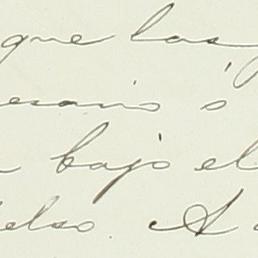 que las
esario ó
bajo el
elso. A